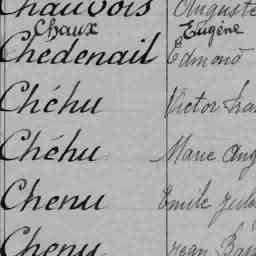 Chauvois Auguste
Chaux Eugène
Chedenail Edmond
Chéhu Victor
Chéhu Marie Ang
Chenu Emile Jule
Chenu Jean Bap